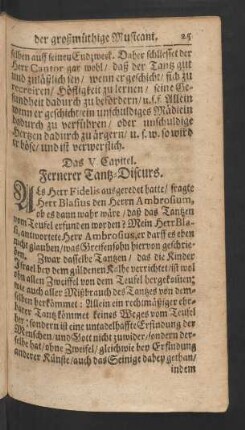 der großmüthige Musicant. 25
selben auff seinen Endzweck. Daher schliesset der
Herr Cantor gar wohl / daß der Tantz gut
und zuläßlich sey / wenn er geschicht / sich zu
recreiren / Höfligkeit zu lernen / seine Ge-
sundheit dadurch zu befördern / u.s.f. Allein
wenn er geschicht / ein unschuldiges Mädlein
dadurch zu verführen / oder unschuldige
Hertzen dadurch zu ärgern / u. s. w. so wird
er böse / und ist verwerfflich.
Das V. Capitel.
Fernerer Tantz-Discurs.
ALs Herr Fidelis ausgeredet hatte / fragte
Herr Blasius den Herrn Ambrosium,
ob es dann wahr wäre / daß das Tantzen
vom Teufel erfunden worden? Mein Herr Bla-
si, antwortete Herr Ambrosius, er darff es eben
nicht glauben / was Greifensohn hiervon geschrie-
ben. Zwar dasselbe Tantzen / das die Kinder
Israel bey dem güldenen Kalbe verrichtet / ist wol
ohn allen Zweiffel von dem Teufel hergekom̃en;
wie auch aller Mißbrauch des Tantzes von dem-
selben herkömmet: Allein ein rechtmäßiger ehr-
barer Tantz kömmet keines Weges vom Teufel
her / sondern ist eine untadelhaffte Erfindung der
Menschen / und Gott nicht zuwider / sondern der-
selbe hat / ohne Zweifel / gleichwie bey Erfindung
anderer Künste / auch das Seinige dabey gethan /
indem